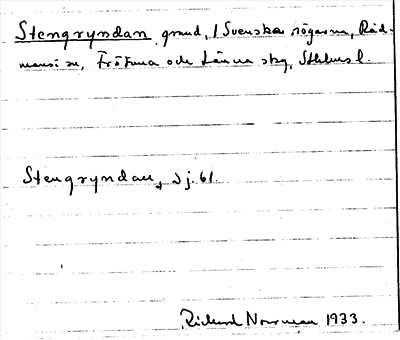 Stengryndan, grund, / Svenska högarna, Råd-
mansö sn, Frötuna och Länna skg, Sthlms l.
Stengryndan, Sj. 61.
Rickard Norrman 1933.